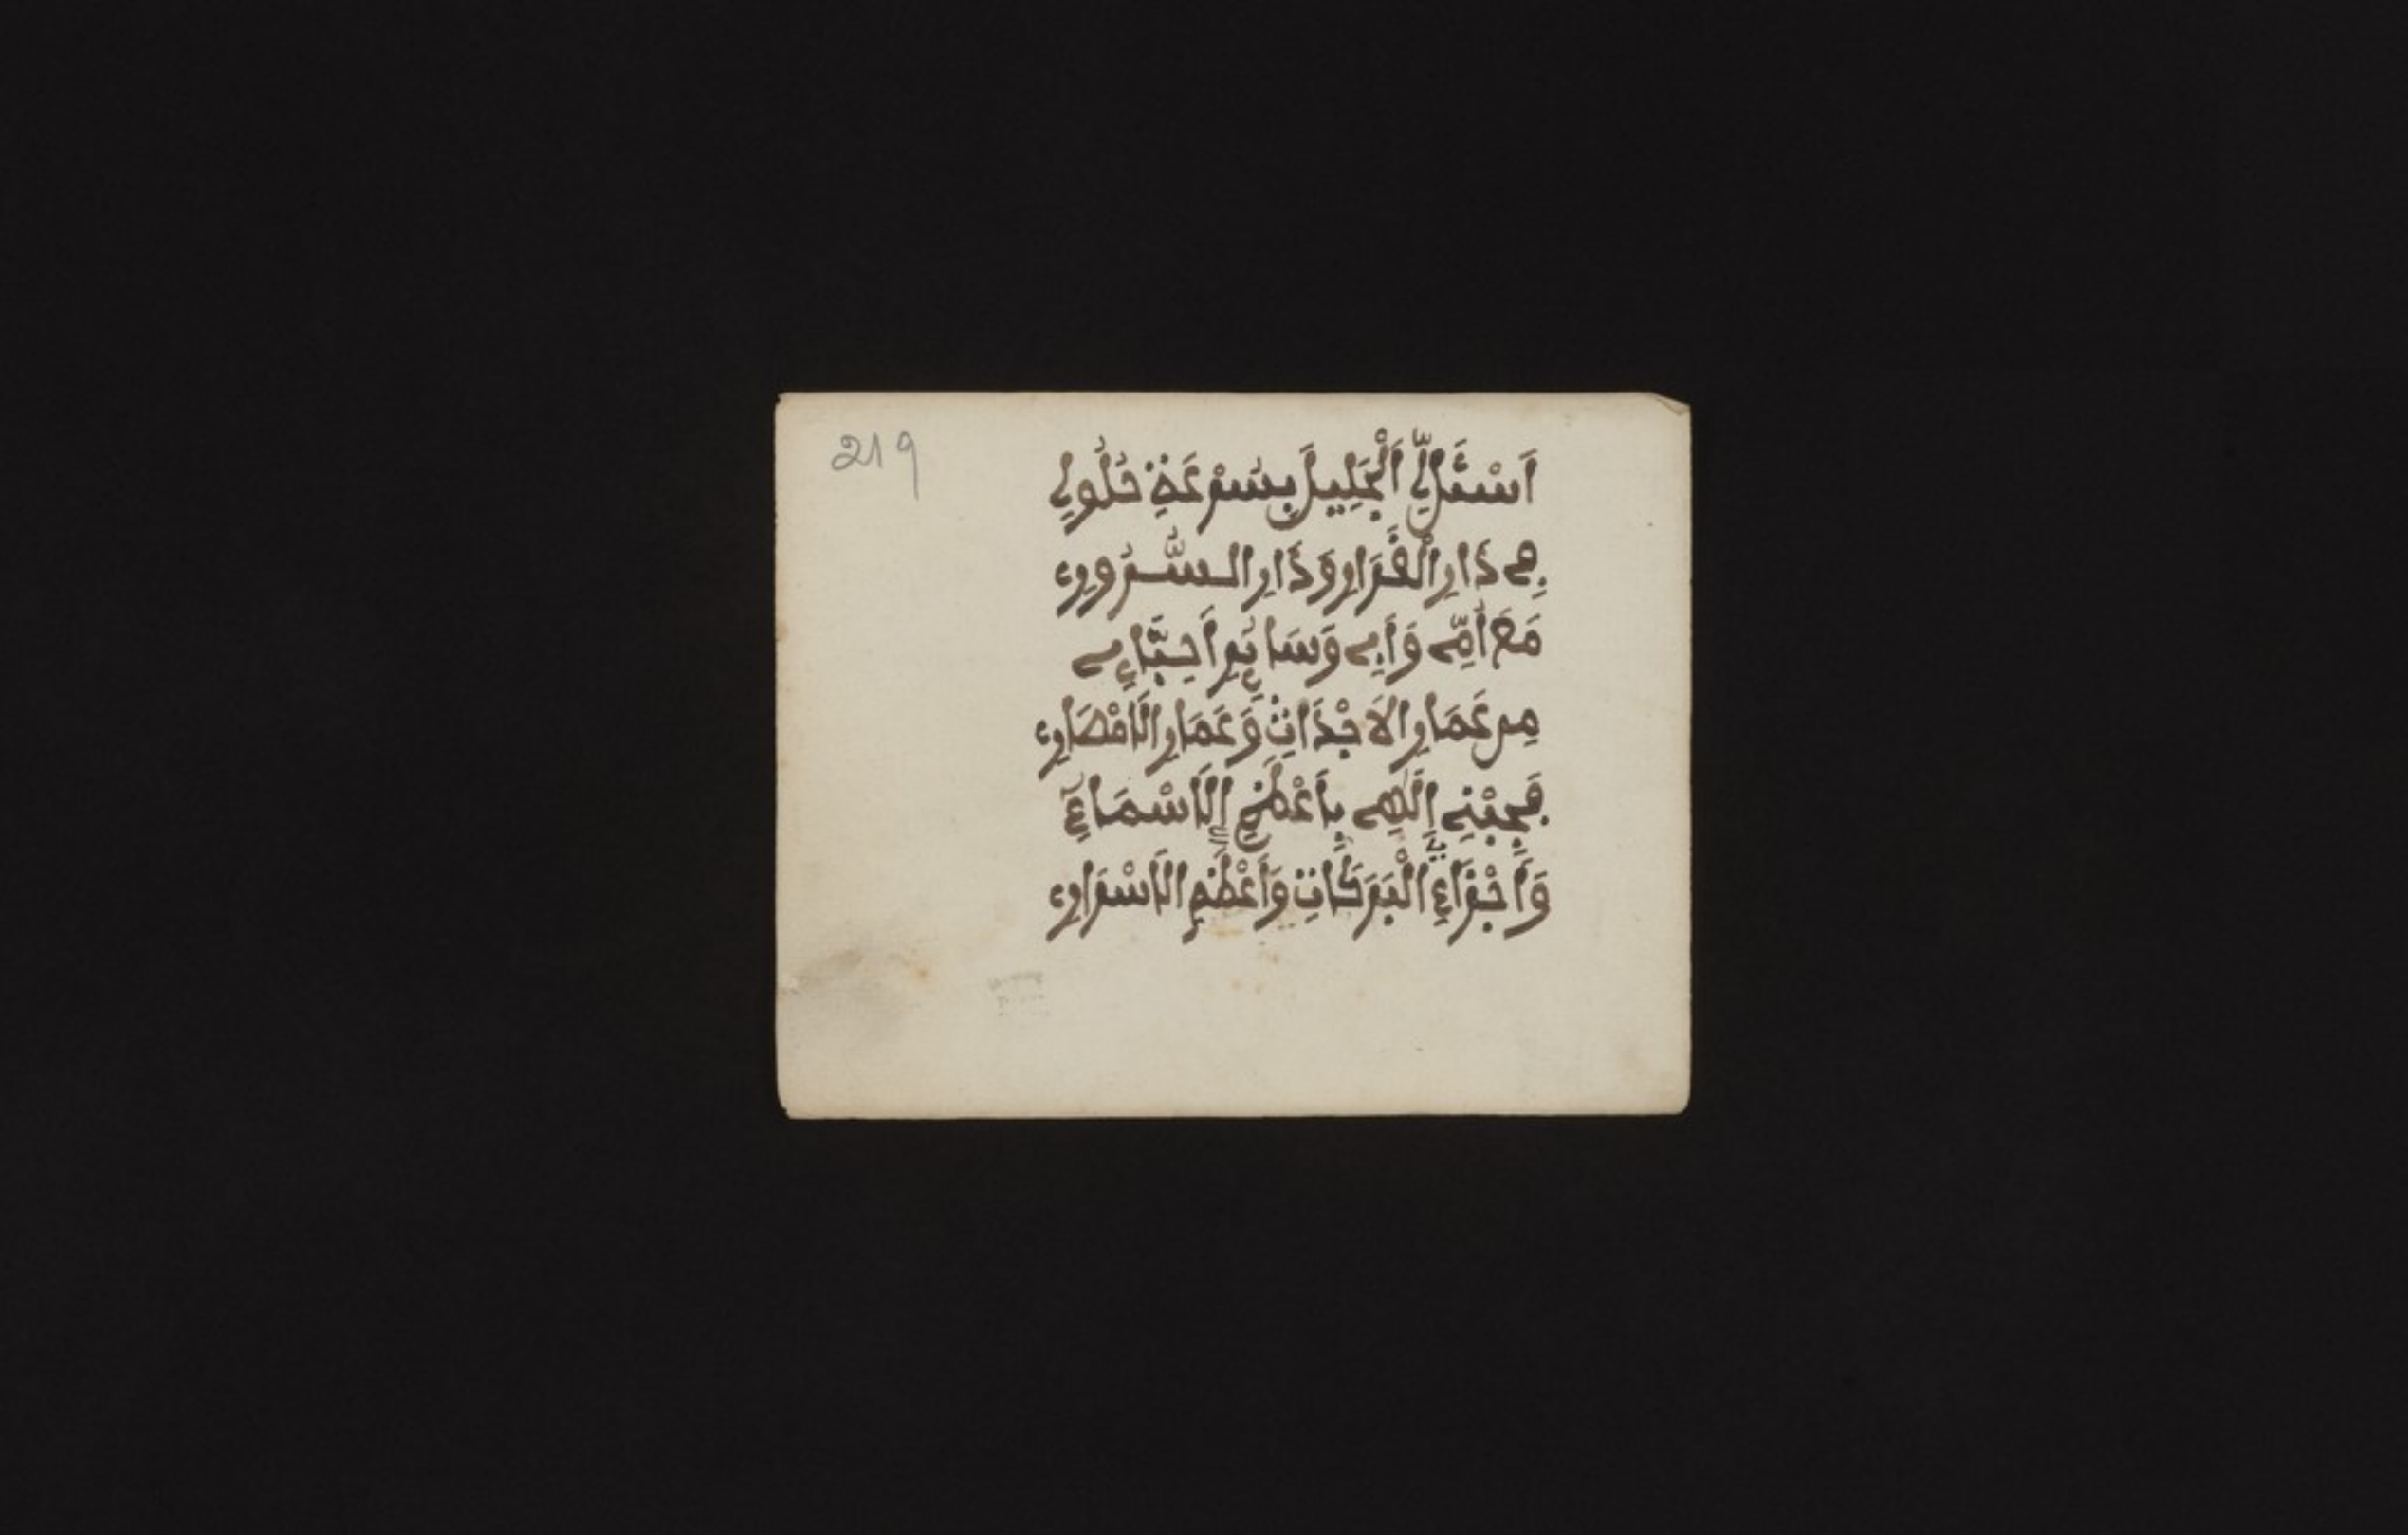 219
اَسْئَلِ اَلْجَلِيلَ بِسُرْعَةٍ حُلُولِ
فِے دَارِ الْقَرَارِ وَدَارِ السُّرُورِ
مَعَ اُمِّے وَأَبِے وَسَائِرِ اَحِبَّاءِے
مِن عَمَارِ الَاجْدَاثِ وَعَمَارِ الَامْصَارِ
إِلَٰهِے بِأَعْظَمِ الَاسْمَاءِ
وَأَجْزَاءِ الْبَرَكَاتِ وَأَعْظَمِ الَاسْرَارِ